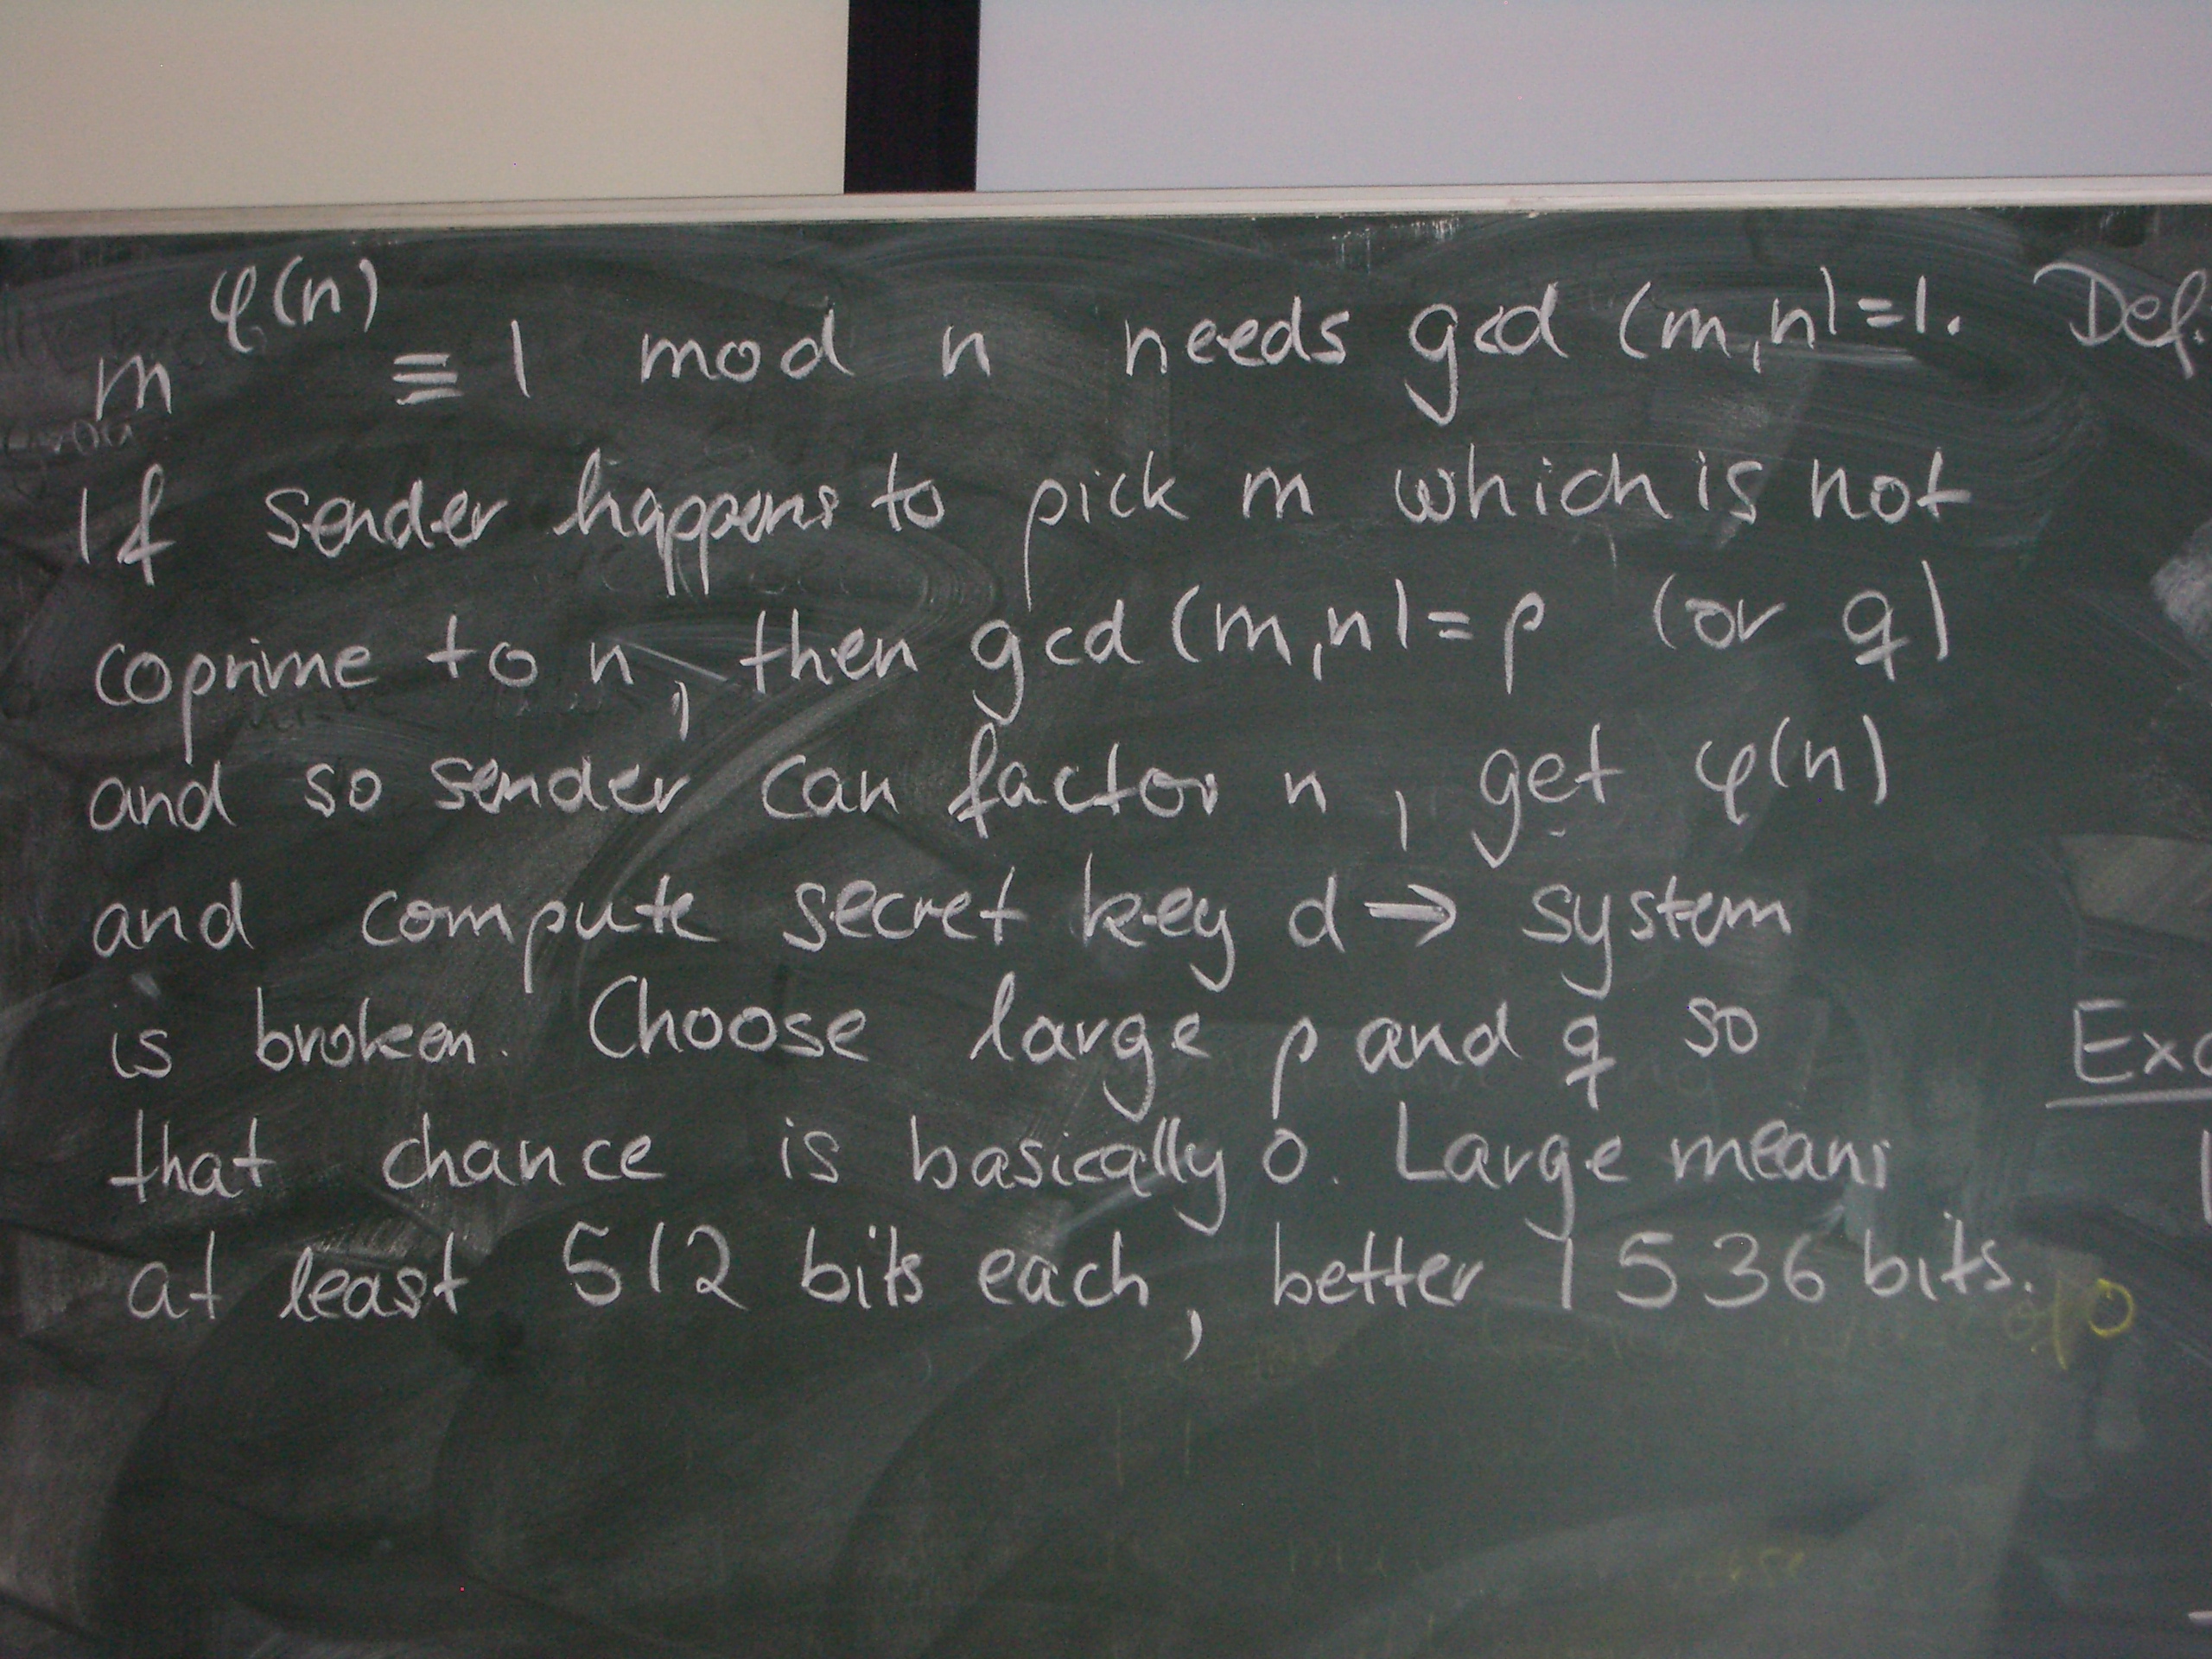 m^φ(n) ≡ 1 mod n needs gcd (m,n)=1.
If sender happens to pick m which is not
coprime to n, then gcd (m,n)=p (or q)
and so sender can factor n, get φ(n)
and compute secret key d → system
is broken. Choose large p and q so
that chance is basically 0. Large means
at least 512 bits each, better 1536 bits.
of 0
Def.